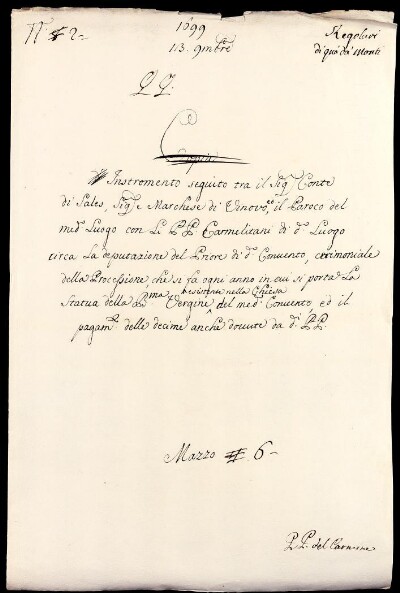 N.º 2
1699
13. 9mbre
Regolari
di quà da' Monti
P. P.
Copia
Instromento seguito tra il Sig.r Conte
di Sales, Sig.re e Marchese di Vinovo, ed il Paroco del
med.º Luogo con Li P.P. Carmelitani di d.º Luogo
circa La deputazione del Priore di d.º Convento, cerimoniale
della Processione, che si fa ogni anno in cui si porta La
Statua della B.ma Vergine esistente nella Chiesa del med.º Convento, ed il
pagam.º delle decime anche dovute da d.i P.P.
Mazzo 6
P.P. del Carmine